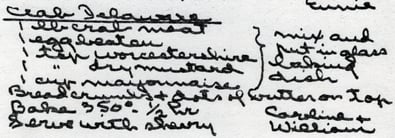 Eunie
Crab Delaware
1 lb crab meat
1 egg beaten
1 tsp worcestershire
1 " dry mustard
1 cup mayonnaise
} mix and
put in glass
baking
dish
Bread crumbs + dots of butter on top
Bake 350° 1/2 hr
Serve with sherry
Caroline +
William